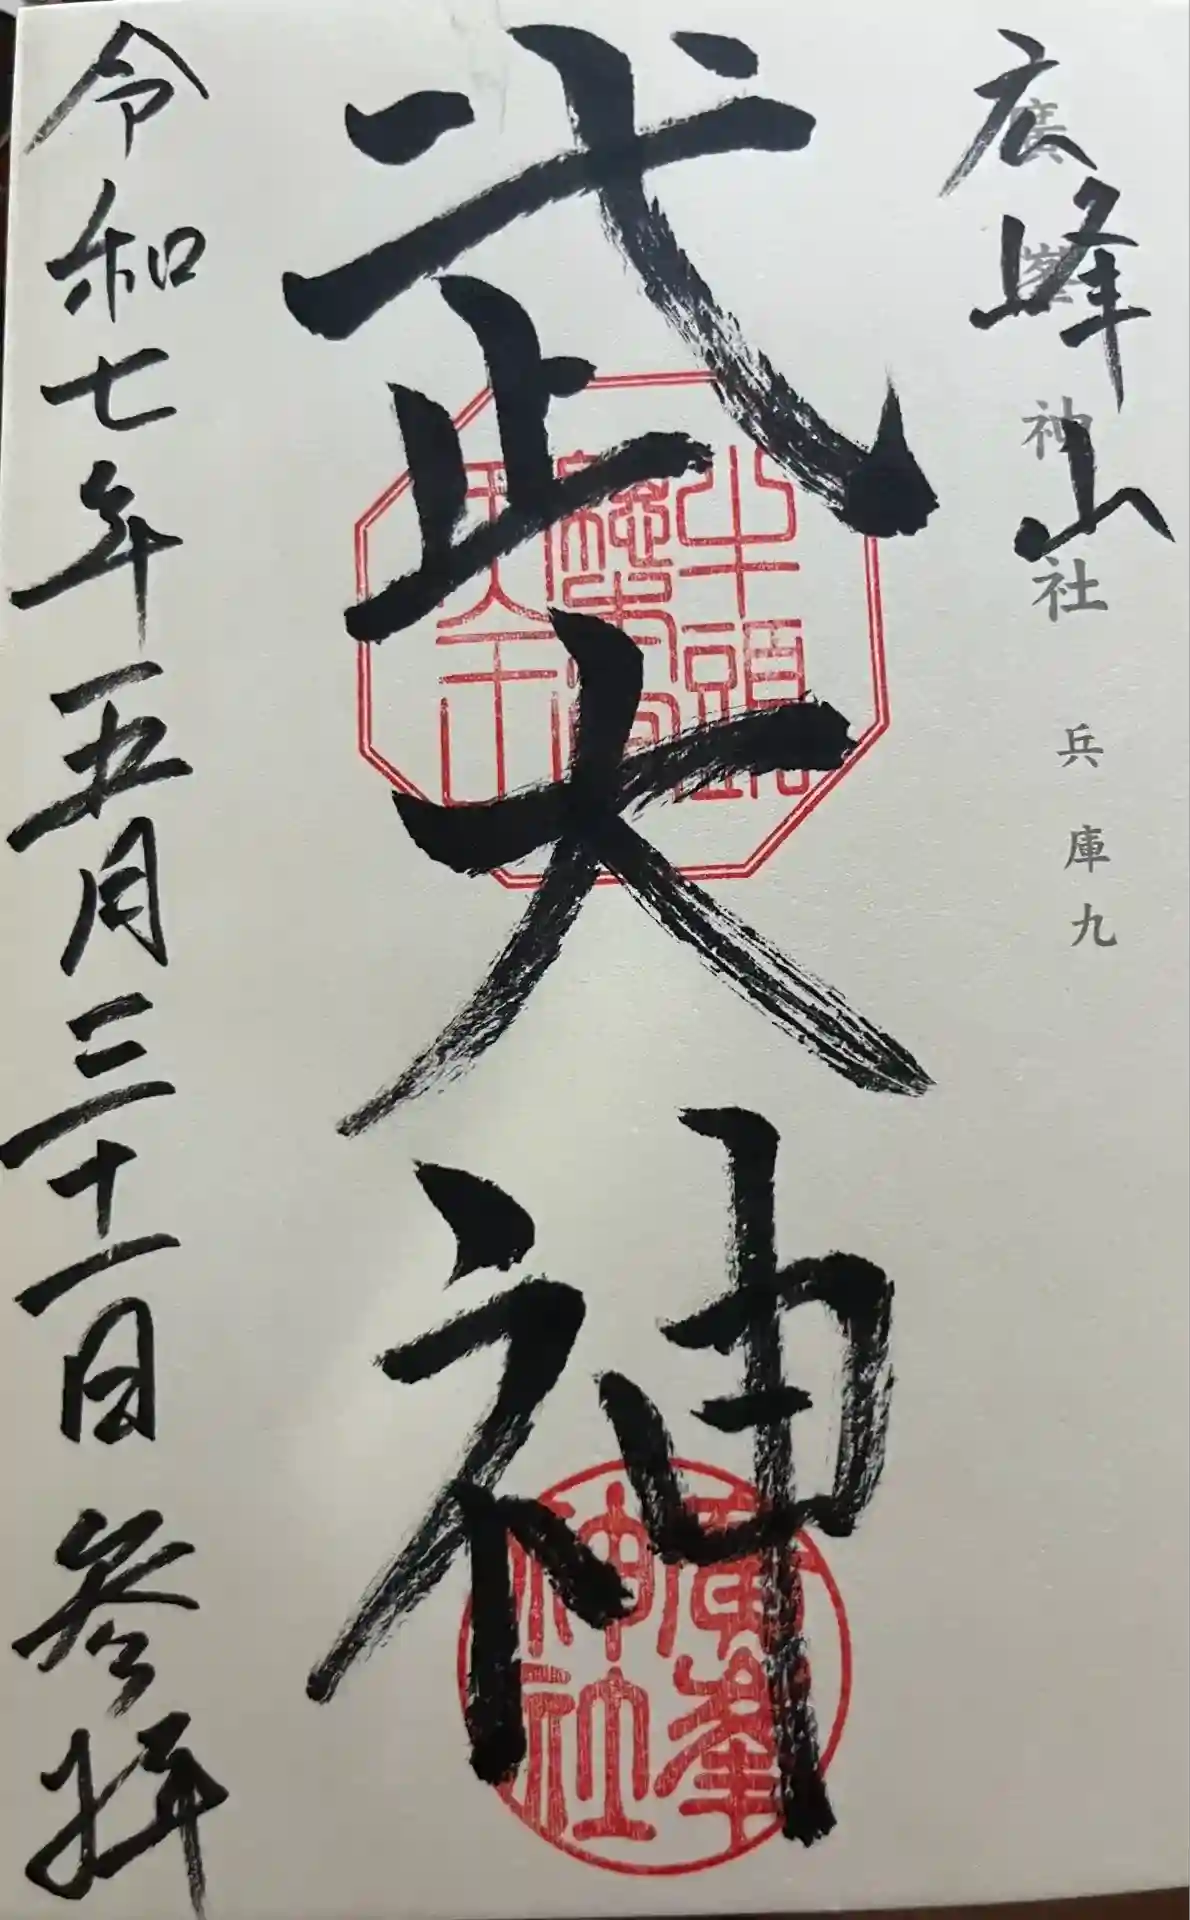 広峰山
廣峯神社 兵庫九
武大神
牛頭
總本宮
天王
廣峯
神社
令和七年五月三十一日参拝